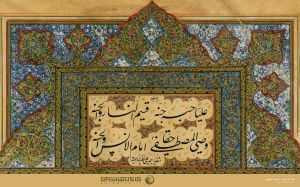 علی حبه جنه قسیم النار والجنه
وصی المصطفی حقا امام الانس والجنه